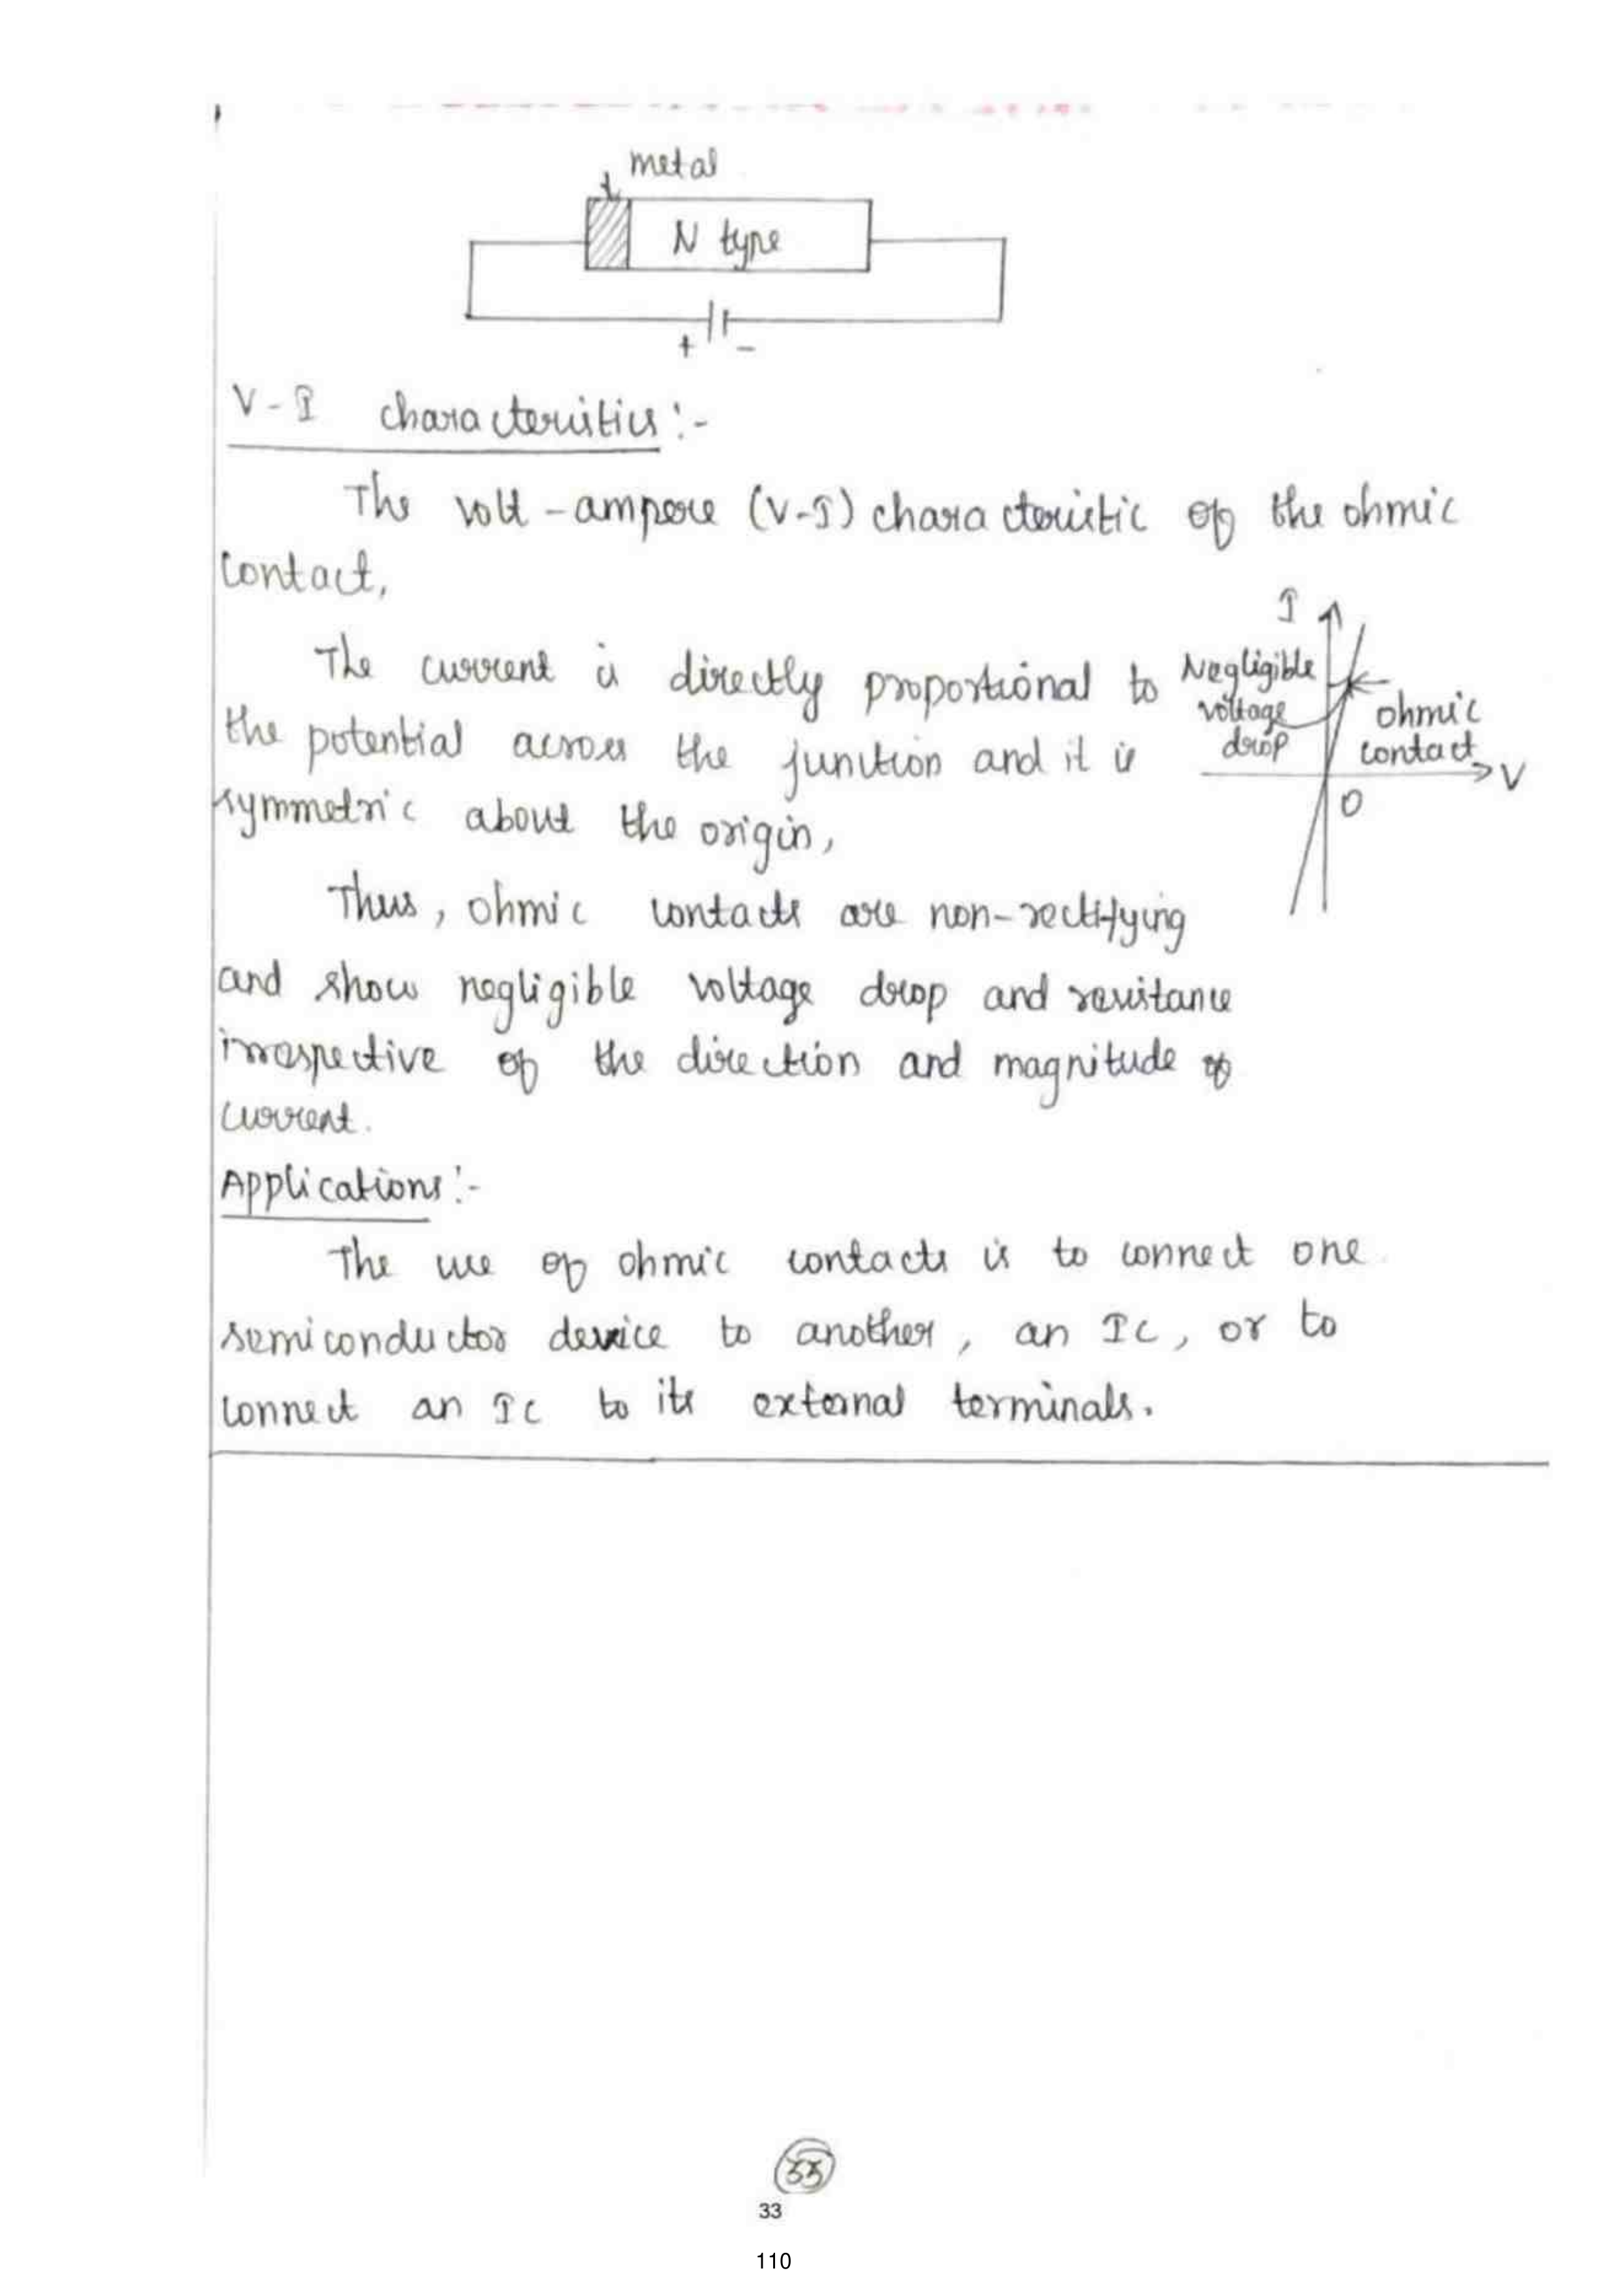 metal
N type
+ -
V-I characteristics:-
The volt-ampere (V-I) characteristic of the ohmic
contact,
The current is directly proportional to
the potential across the junction and it is
symmetric about the origin,
I
Negligible
voltage
drop
ohmic
contact
V
0
Thus, ohmic contacts are non-rectifying
and show negligible voltage drop and resistance
irrespective of the direction and magnitude of
current.
Applications:-
The use of ohmic contacts is to connect one
semiconductor device to another, an IC, or to
connect an IC to its external terminals.
33
33
110